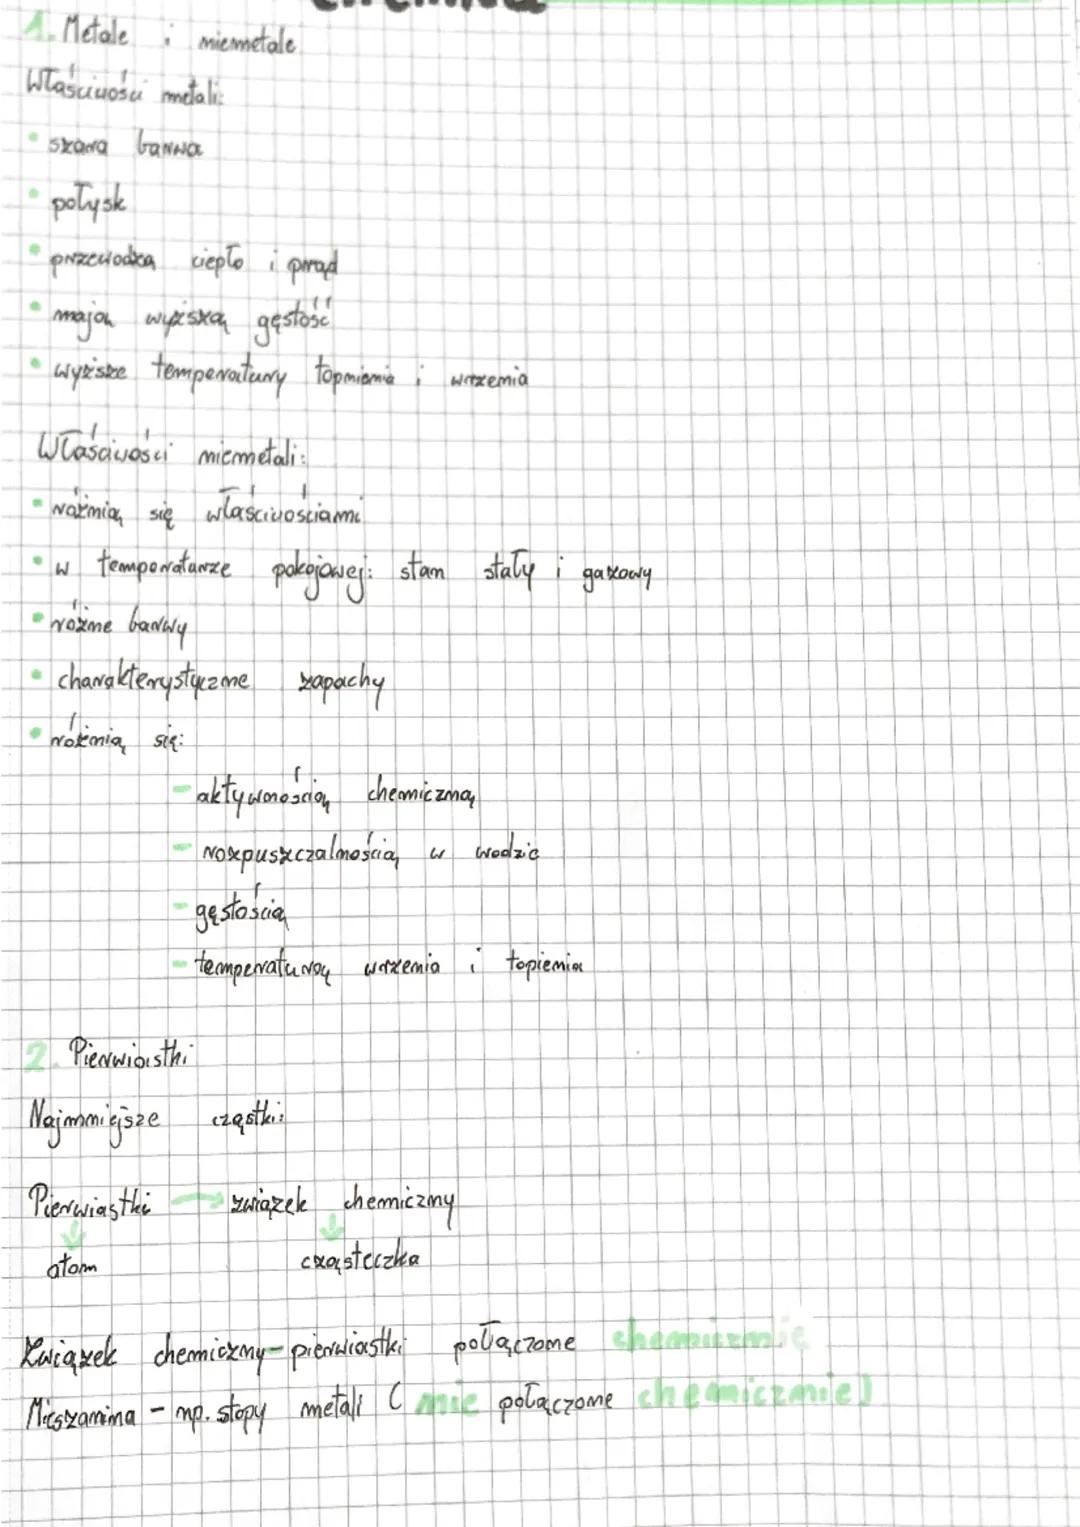 1. Metale i niemetale
Właściwości metali:
• szara barwa
• połysk
• przewodzą ciepło i prąd
• mają wyższą gęstość
• wyższe temperatury topnienia i wrzenia
Właściwości niemetali:
• różnią się właściwościami
• w temperaturze pokojowej: stan stały i gazowy
• różne barwy
• charakterystyczne zapachy
• różnią się:
- aktywnością chemiczną
- rozpuszczalnością w wodzie
- gęstością
- temperaturą wrzenia i topienia
2. Pierwiastki
Najmniejsze cząstki:
Pierwiastki → związek chemiczny
↓ ↓
atom cząsteczka
Związek chemiczny - pierwiastki połączone chemicznie
Mieszanina - np. stopy metali (nie połączone chemicznie)